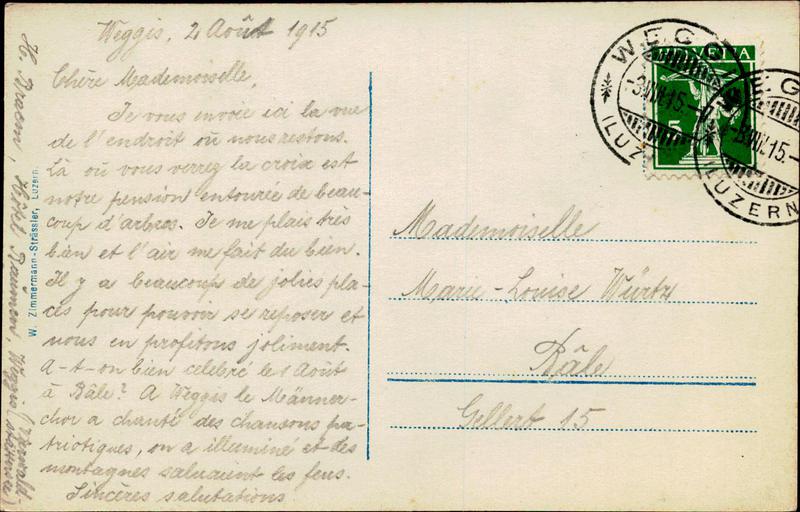 Weggis, 2 Août 1915
Chère Mademoiselle,
Je vous envoie ici la vue
de l'endroit où nous restons.
Là où vous verrez la croix est
notre pension entourée de beau-
coup d'arbres. Je me plais très
bien et l'air me fait du bien.
Il y a beaucoup de jolies pla-
ces pour pouvoir se reposer et
nous en profitons joliment.
A-t-on bien célébré le 1 Août
à Bâle? A Weggis le Männer-
chor a chanté des chansons pa-
triotiques, on a illuminé et des
montagnes saluaient les feus.
Sincères salutations
H. Hôtel Weggis
W. Zimmermann-Strässler, Luzern.
HELVETIA
5
WEGGIS
-3.VIII.15.-
(LUZERN)
WEGGIS
-3.VIII.15.-
(LUZERN)
Mademoiselle
Marie-Louise Würtz
Bâle
Gellert 15